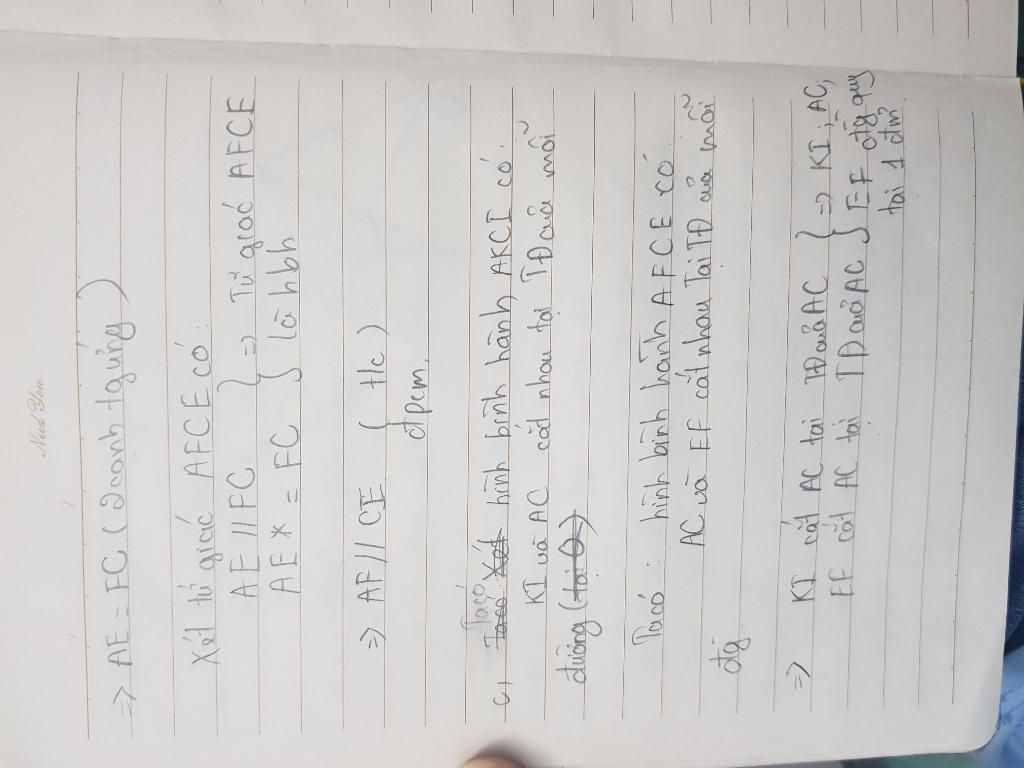 Need You
=> AE = FC (2 cạnh tgứng)
Xét tứ giác AFCE có:
AE // FC } => Tứ giác AFCE
AE = FC } là hbh
=> AF // CE ( t/c )
đpcm.
c, Ta có hình bình hành AKCI có:
KI và AC cắt nhau tại TĐ của mỗi
đường (tại O)
Ta có: hình bình hành AFCE có
AC và EF cắt nhau tại TĐ của mỗi
đg
=> KI cắt AC tại TĐ của AC } => KI; AC;
EF cắt AC tại TĐ của AC } EF đg quy
tại 1 điểm.